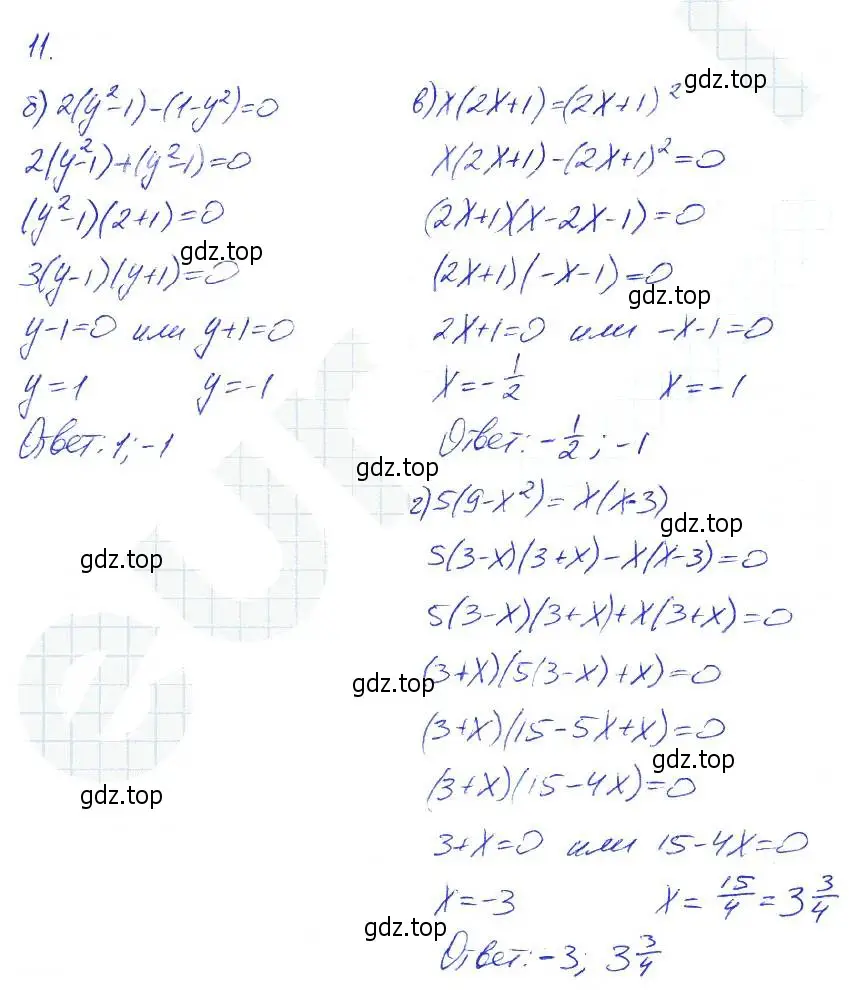 11.
б) 2(y²-1)-(1-y²)=0
2(y²-1)+(y²-1)=0
(y²-1)(2+1)=0
3(y-1)(y+1)=0
y-1=0 или y+1=0
y=1 y=-1
Ответ: 1; -1
в) x(2x+1)=(2x+1)²
x(2x+1)-(2x+1)²=0
(2x+1)(x-2x-1)=0
(2x+1)(-x-1)=0
2x+1=0 или -x-1=0
x=-1/2 x=-1
Ответ: -1/2; -1
г) 5(9-x²)=x(x-3)
5(3-x)(3+x)-x(x-3)=0
5(3-x)(3+x)+x(3+x)=0
(3+x)(5(3-x)+x)=0
(3+x)(15-5x+x)=0
(3+x)(15-4x)=0
3+x=0 или 15-4x=0
x=-3 x=15/4=3 3/4
Ответ: -3; 3 3/4
gdz.top
gdz.top
gdz.top
gdz.top
gdz.top
gdz.top
gdz.top
gdz.top
gdz.top
gdz.top
gdz.top
eur